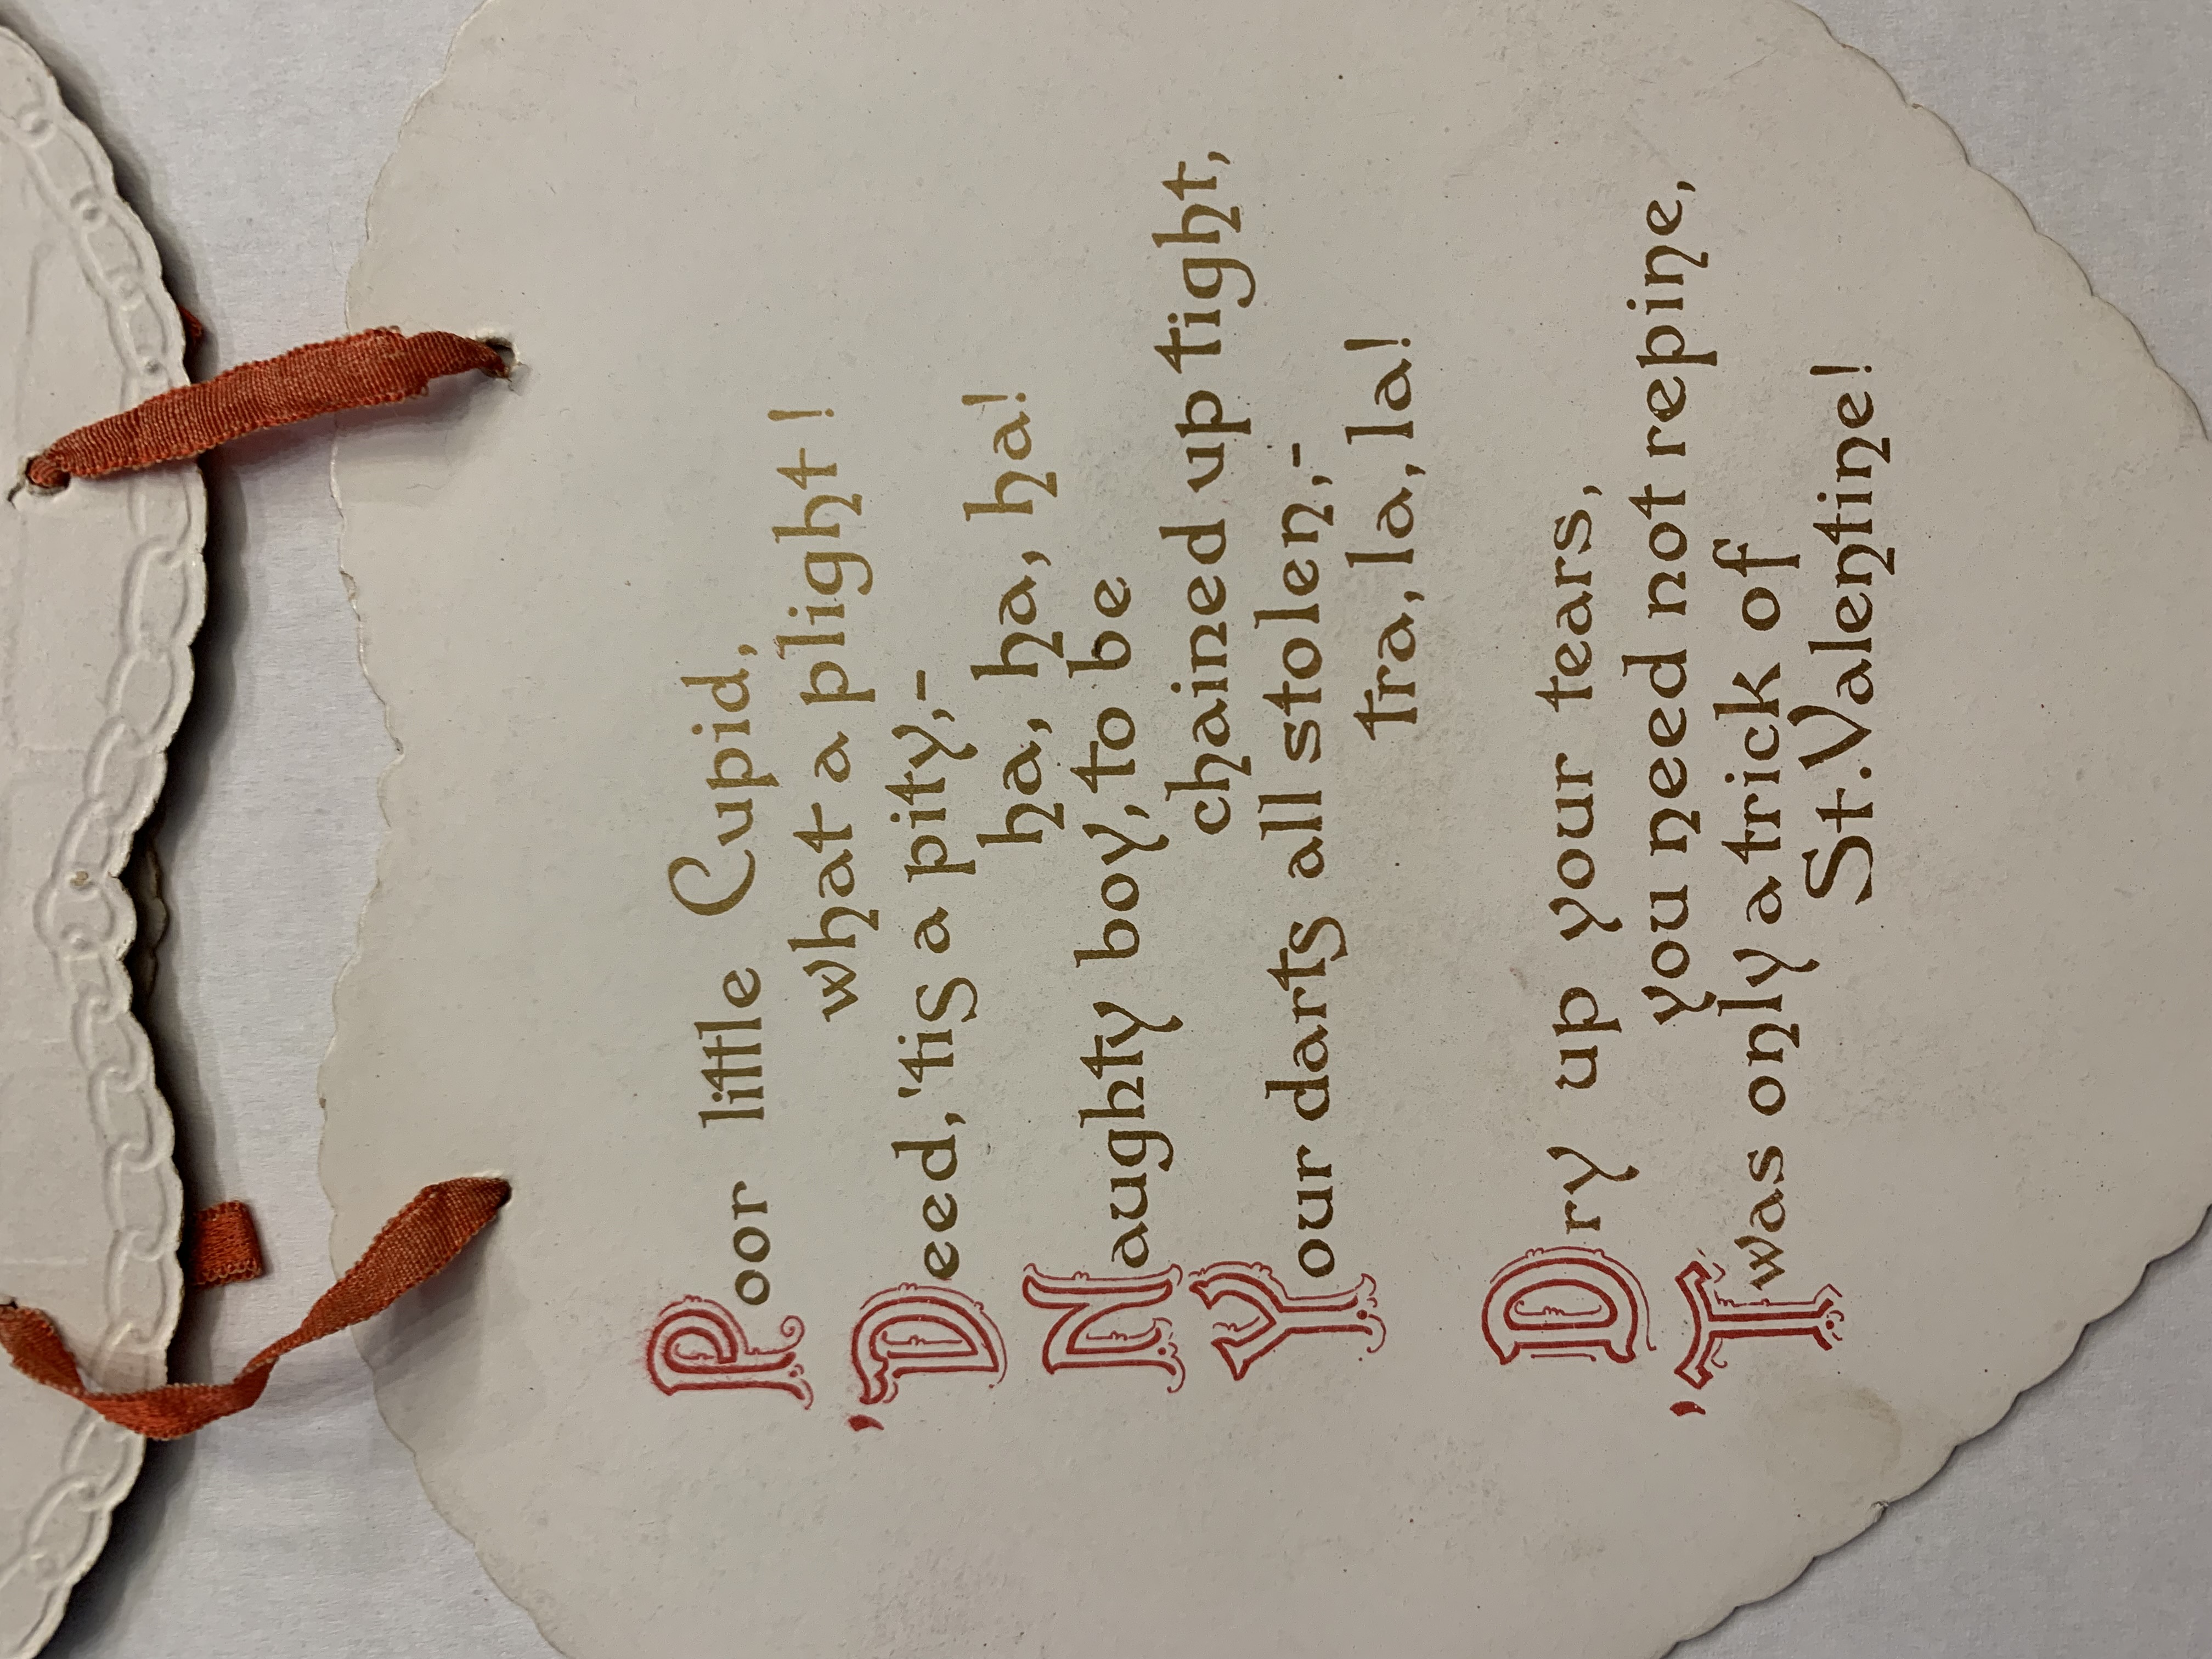 Poor little Cupid,
what a plight!
'Deed, 'tis a pity,-
ha, ha, ha, ha!
Naughty boy, to be
chained up tight,
Your darts all stolen,-
tra, la, la, la!
Dry up your tears,
you need not repine,
'Twas only a trick of
St. Valentine!